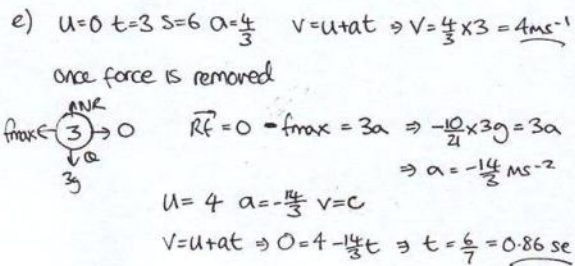 e) u=0 t=3 S=6 a=4/3 v=u+at ⇒ v=4/3×3 = 4ms⁻¹
once force is removed
NR
fmax ← 3 → 0 RF = 0 - fmax = 3a ⇒ -10/21×3g = 3a
3g
⇒ a = -14/3 ms⁻²
u= 4 a=-14/3 v=c
v=u+at ⇒ 0=4-14/3t ⇒ t=6/7=0.86 se